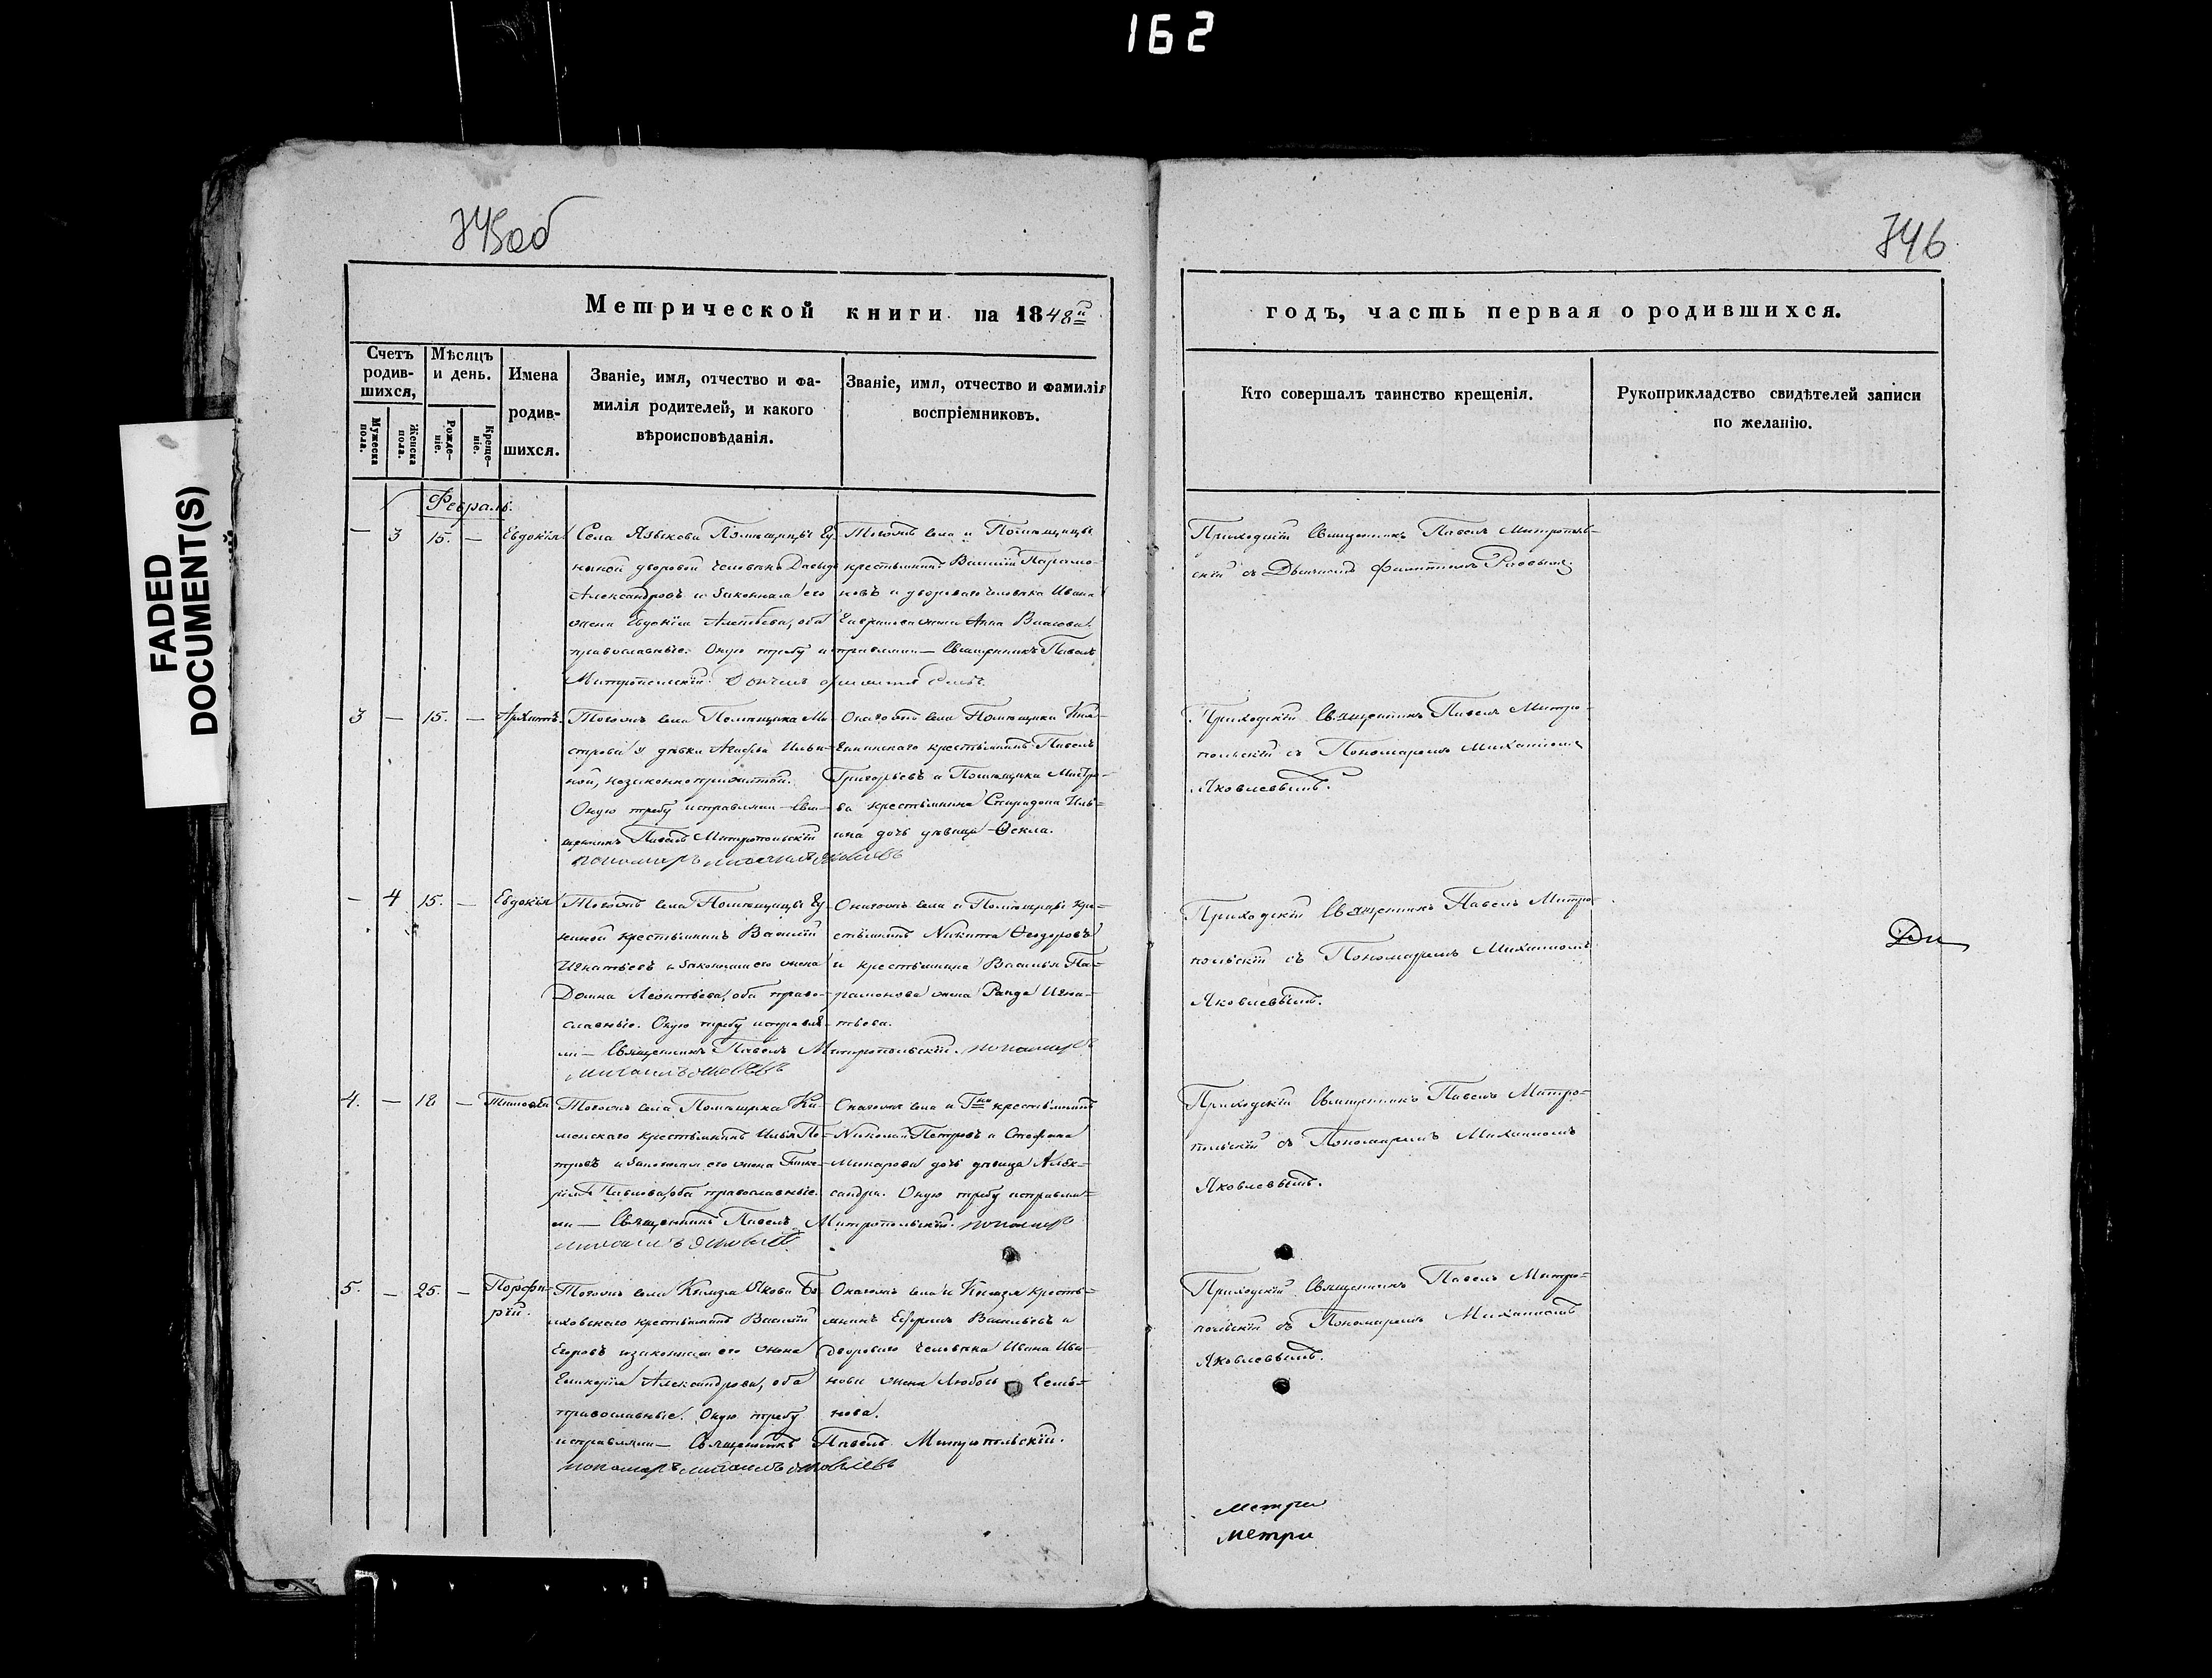 162
745об
746
FADED
DOCUMENT(S)
Метрической книги на 1848й
годъ, часть первая о родившихся.
Счетъ родив-шихся,
Мужеска пола.
Женска пола.
Мѣсяцъ и день.
Рожде-ніе.
Креще-ніе.
Имена родив-шихся.
Званіе, имя, отчество и фа-
милія родителей, и какого
вѣроисповѣданія.
Званіе, имя, отчество и фамилія
воспріемниковъ.
Кто совершалъ таинство крещенія.
Рукоприкладство свидѣтелей записи
по желанію.
Февраль.
— 3 15. — Евдокія
Села Языкова Помѣщицы
дворовой человѣкъ Давыдъ
Александровъ и законная его
жена Евдокія, оба
православные. Оную требу и
Тогожъ села и Помѣщицы
крестьянинъ Василій Парамо-
новъ и двороваго человѣка Ивана
жена Анна Власова.
справляли — Священникъ Павелъ
Митропольскій.
Приходскій Священникъ Павелъ Митрополь-
скій съ Дьячкомъ
3 — 15. —
Тогожъ села Помѣщика Ми-
строва у дѣвки Агафьи Ильи-
ной, незаконноприжитой.
Оную требу исправляли — Свя-
щенникъ Павелъ Митропольскій
пономарь михаилъ яковлевъ
Онагожъ села Помѣщика
крестьянинъ Павелъ
Григорьевъ и Помѣщика Мистро-
ва крестьянина Спиридона Иль-
ина дочь дѣвица Ѳекла.
Приходскій Священникъ Павелъ Митро-
польскій съ Пономаремъ Михаиломъ
Яковлевымъ.
— 4 15. — Евдокія
Тогожъ села Помѣщицы
крестьянинъ Василій
Игнатьевъ и законная его жена
Домна Леонтьева, оба право-
славные. Оную требу исправля-
ли — Священникъ Павелъ Митропольскій. пономарь
михаилъ яковлевъ
Онагожъ села и Помѣщицы кре-
стьянинъ Никита Ѳедоровъ
и крестьянина Василья Па-
рамонова жена Игна-
тьева.
Приходскій Священникъ Павелъ Митро-
польскій съ Пономаремъ Михаиломъ
Яковлевымъ.
4. — 18 — Тимофей
Тогожъ села Помѣщика
крестьянинъ Илья Пе-
тровъ и законная его жена Глике-
рія Павлова, оба православные.
Онагожъ села и Гна крестьянинъ
Николай Петровъ и Стефана
Макарова дочь дѣвица Алек-
сандра. Оную требу исправля-
ли — Священникъ Павелъ Митропольскій. пономарь
михаилъ яковлевъ
Приходскій Священникъ Павелъ Митро-
польскій съ Пономаремъ Михаиломъ
Яковлевымъ.
5. — 25. — Порфи-
рій.
Тогожъ села Князя
крестьянинъ Василій
Егоровъ и законная его жена
Гликерія Александрова, оба
православные. Оную требу
исправляли — Священникъ Павелъ Митропольскій.
пономарь михаилъ яковлевъ
Онагожъ села и Князя кресть-
янинъ Ефремъ Васильевъ и
двороваго человѣка Ивана Ива-
нова жена Любовь
нова.
Приходскій Священникъ Павелъ Митро-
польскій съ Пономаремъ Михаиломъ
Яковлевымъ.
Метри
Метри